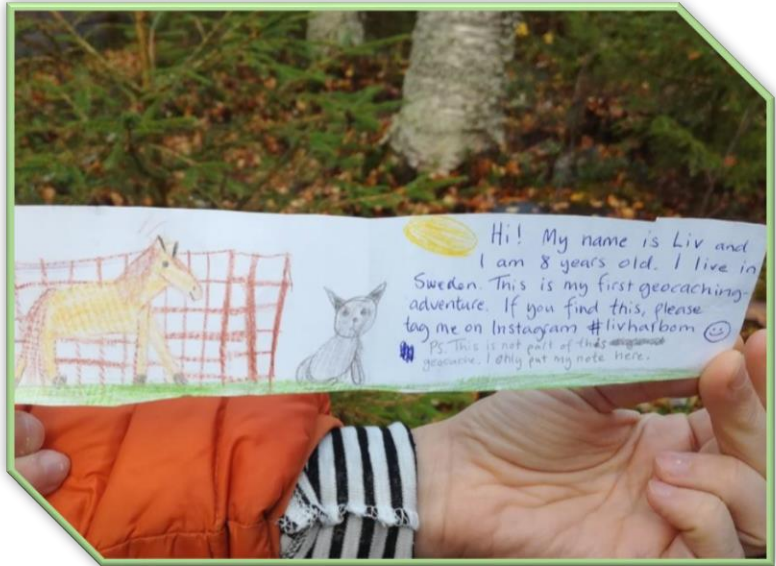 Hi! My name is Liv and
I am 8 years old. I live in
Sweden. This is my first geocaching-
adventure. If you find this, please
tag me on Instagram #livharbom
PS. This is not part of this
geocache. I only put my note here.